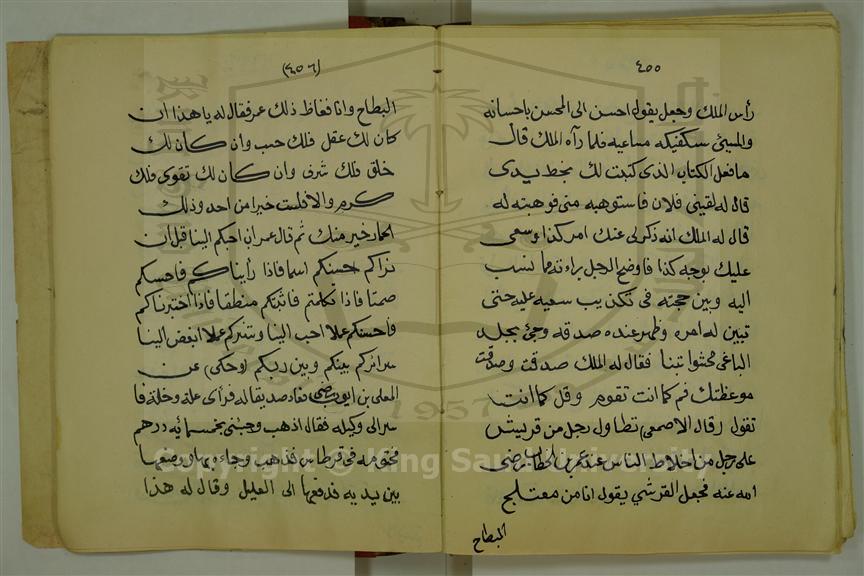 ٤٥٥
رأس الملك وجعل يقول احسن الى المحسن باحسانه
والمسئ ستكفيكه مساعيه فلما رآه الملك قال
ما فعل الكتاب الذى كتبت لك بخط يدى
قال له لقينى فلان فاستوهبه منى فوهبته له
قال له الملك انه ذكر لى عنك امر كذا وسعى
عليك بوجه كذا فاوضح الرجل براءته مما نسب
اليه وبين حجته فى تكذيب سعيه عليه حتى
تبين له امره وظهر عنده صدقه وجئ بجلد
الباغى محثوا تبنا فقال له الملك صدقت وصدقت
موعظتك قم كما انت تقوم وقل كما انت
تقول وقال الاصمعى تطاول رجل من قريش
على رجل من اخلاط الناس عند عمر بن الخطاب رضى
الله عنه فجعل القرشي يقول انا من معتلج
البطاح
(٤٥٦)
البطاح وانا فغاظ ذلك عمر فقال له يا هذا ان
كان لك عقل فلك حسب وان كان لك
خلق فلك شرف وان كان لك تقوى فلك
كرم والا فلست خيرا من احد وذلك
الحمار خير منك ثم قال عمر ان احبكم الينا قبل ان
نراكم احسنكم اسما فاذا رأيناكم فاحسنكم
صمتا فاذا تكلمتم فاثبتكم منطقا فاذا اختبرناكم
فاحسنكم عملا احب الينا وشركم عملا ابغض الينا
سرائركم بينكم وبين ربكم (وحكى) عن
المعلى بن ايوب فعاد صديقا له فرأى علة وخلة فا
سر الى وكيله فقال اذهب وجئنى بخمسمائة درهم
مختومة فى قرطاس فذهب وجاء بها ووضعها
بين يديه فدفعها الى العليل وقال له هذا
1957
Copyright © King Saud University